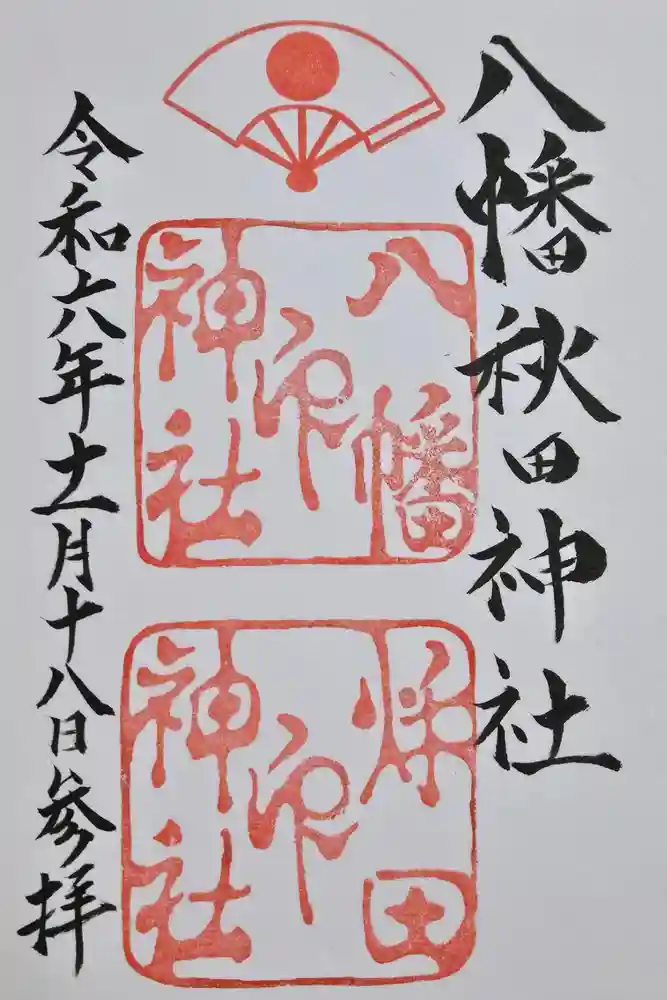 八幡秋田神社
八幡
神社
印
秋田
神社
印
令和六年十一月十八日参拝